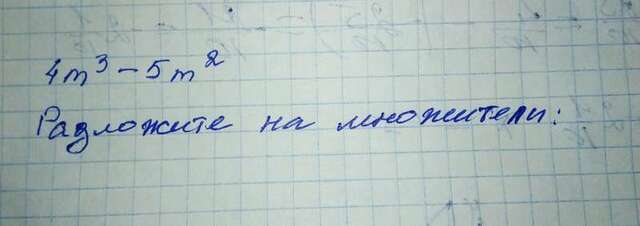 4m³ - 5m²
Разложите на множители: